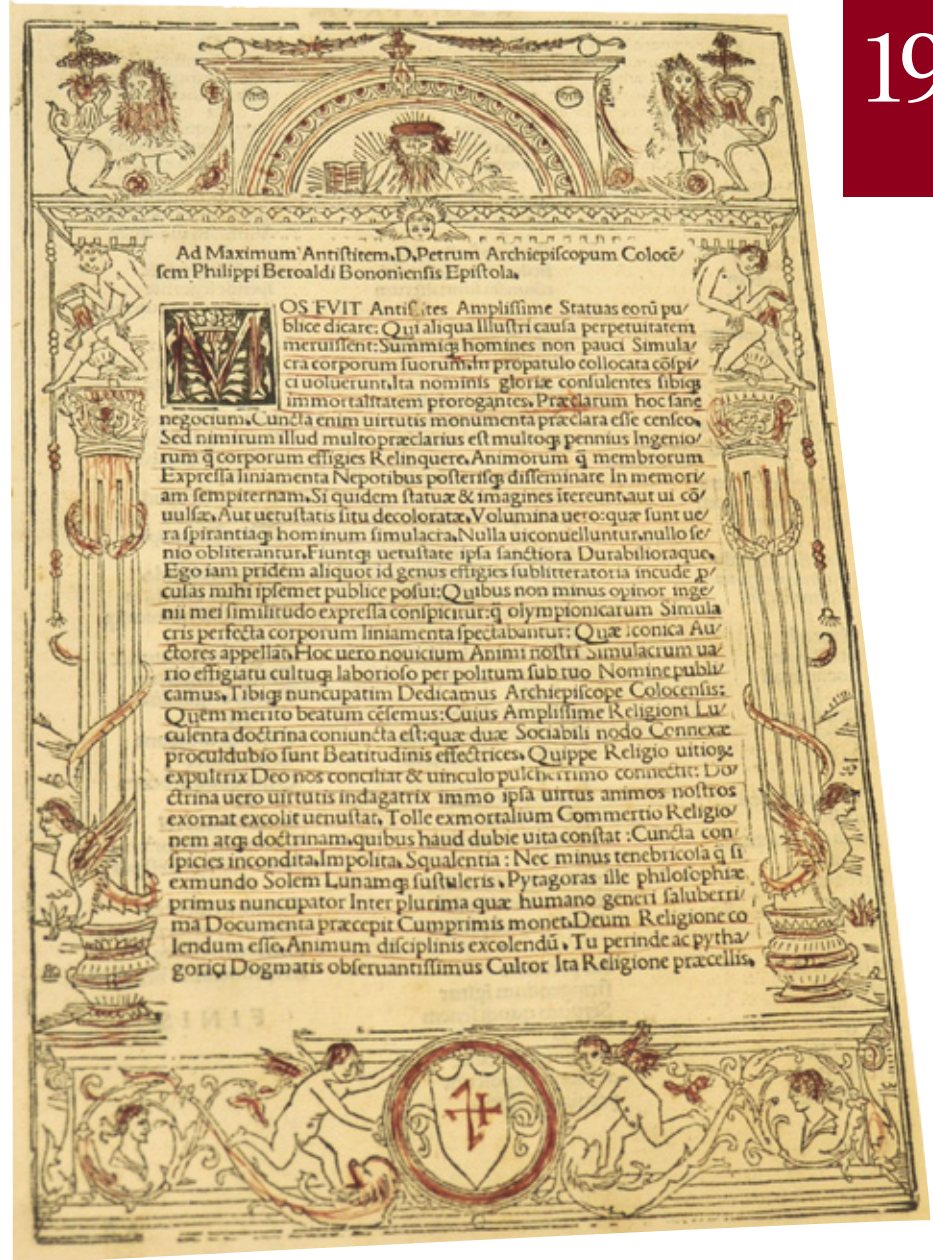 19
Ad Maximum Antiſtitem.D.Petrum Archiepiſcopum Colocē/
ſem Philippi Beroaldi Bononienſis Epiſtola.
MOS FVIT Antiſtites Ampliſſime Statuas eorū pu/
blice dicare: Qui aliqua Illuſtri cauſa perpetuitatem
meruiſſent:Summiqꝫ homines non pauci Simula/
cra corporum ſuorum.In propatulo collocata cōſpi/
ci uoluerunt.Ita nominis gloriæ conſulentes ſibiqꝫ
immortalitatem prorogantes. Præclarum hoc ſane
negocium.Cuncta enim uirtutis monumenta præclara eſſe cenſeo.
Sed nimirum illud multo præclarius eſt multoqꝫ pennius Ingenio/
rum q̄ corporum effigies Relinquere.Animorum q̄ membrorum
Expreſſa liniamenta Nepotibus poſteriſqꝫ diſſeminare In memori/
am ſempiternam.Si quidem ſtatuæ & imagines ītereunt.aut ui cō/
uulſæ.Aut uetuſtatis ſitu decoloratæ.Volumina uero:quæ ſunt ue/
ra ſpirantiaqꝫ hominum ſimulacra.Nulla uiconuelluntur.nullo ſe/
nio obliterantur.Fiuntqꝫ uetuſtate ipſa ſanctiora Durabilioraque.
Ego iam pridem aliquot id genus effigies ſublitteratoria incude ꝑ/
culas mihi ipſemet publice poſui:Quibus non minus opinor inge/
nii mei ſimilitudo expreſſa conſpicitur:q̄ olympionicarum Simula
cris perfecta corporum liniamenta ſpectabantur: Quæ iconica Au/
ctores appellāt.Hoc uero nouicium Animi noſtri Simulacrum ua/
rio effigiatu cultuqꝫ laborioſo per politum ſub tuo Nomine publi/
camus.Tibiqꝫ nuncupatim Dedicamus Archiepiſcope Colocenſis:
Quem merito beatum cēſemus:Cuius Ampliſſime Religioni Lu/
culenta doctrina coniuncta eſt:quæ duæ Sociabili nodo Connexæ
proculdubio ſunt Beatitudinis effectrices. Quippe Religio uitioꝝ
expultrix Deo nos conciliat & uinculo pulcherrimo connectit: Do/
ctrina uero uirtutis indagatrix immo ipſa uirtus animos noſtros
exornat excolit uenuſtat. Tolle exmortalium Commertio Religio/
nem atqꝫ doctrinam.quibus haud dubie uita conſtat :Cuncta con
ſpicies incondita.Impolita. Squalentia : Nec minus tenebricoſa q̄ ſi
exmundo Solem Lunamqꝫ ſuſtuleris . Pytagoras ille philoſophiæ
primus nuncupator Inter plurima quæ humano generi ſaluberri/
ma Documenta præcepit Cumprimis monet.Deum Religione co
lendum eſſe.Animum diſciplinis excolendū . Tu perinde ac pytha/
gorici Dogmatis obſeruantiſſimus Cultor Ita Religione præcellis.